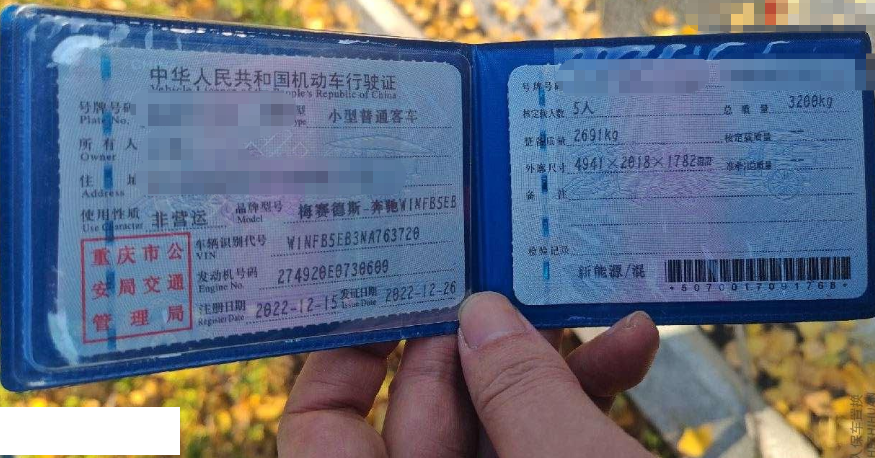 中华人民共和国机动车行驶证
Vehicle License of the People's Republic of China
号牌号码
Plate No.
型
ype
小型普通客车
所有人
Owner
住
Address
使用性质
Use Character
非营运
品牌型号
Model
梅赛德斯-奔驰W1NFB5EB
重庆市公
安局交通
管理局
车辆识别代号
VIN
W1NFB5EB3NA763720
发动机号码
Engine No.
274920E0730600
注册日期
Register Date
2022-12-15
发证日期
Issue Date
2022-12-26
号牌号码
核定载人数 5人
总质量 3200kg
整备质量 2691kg
核定载质量 --
外廓尺寸 4941×2018×1782mm
准牵引总质量 --
备注
检验记录
新能源/混
*5070017091768*